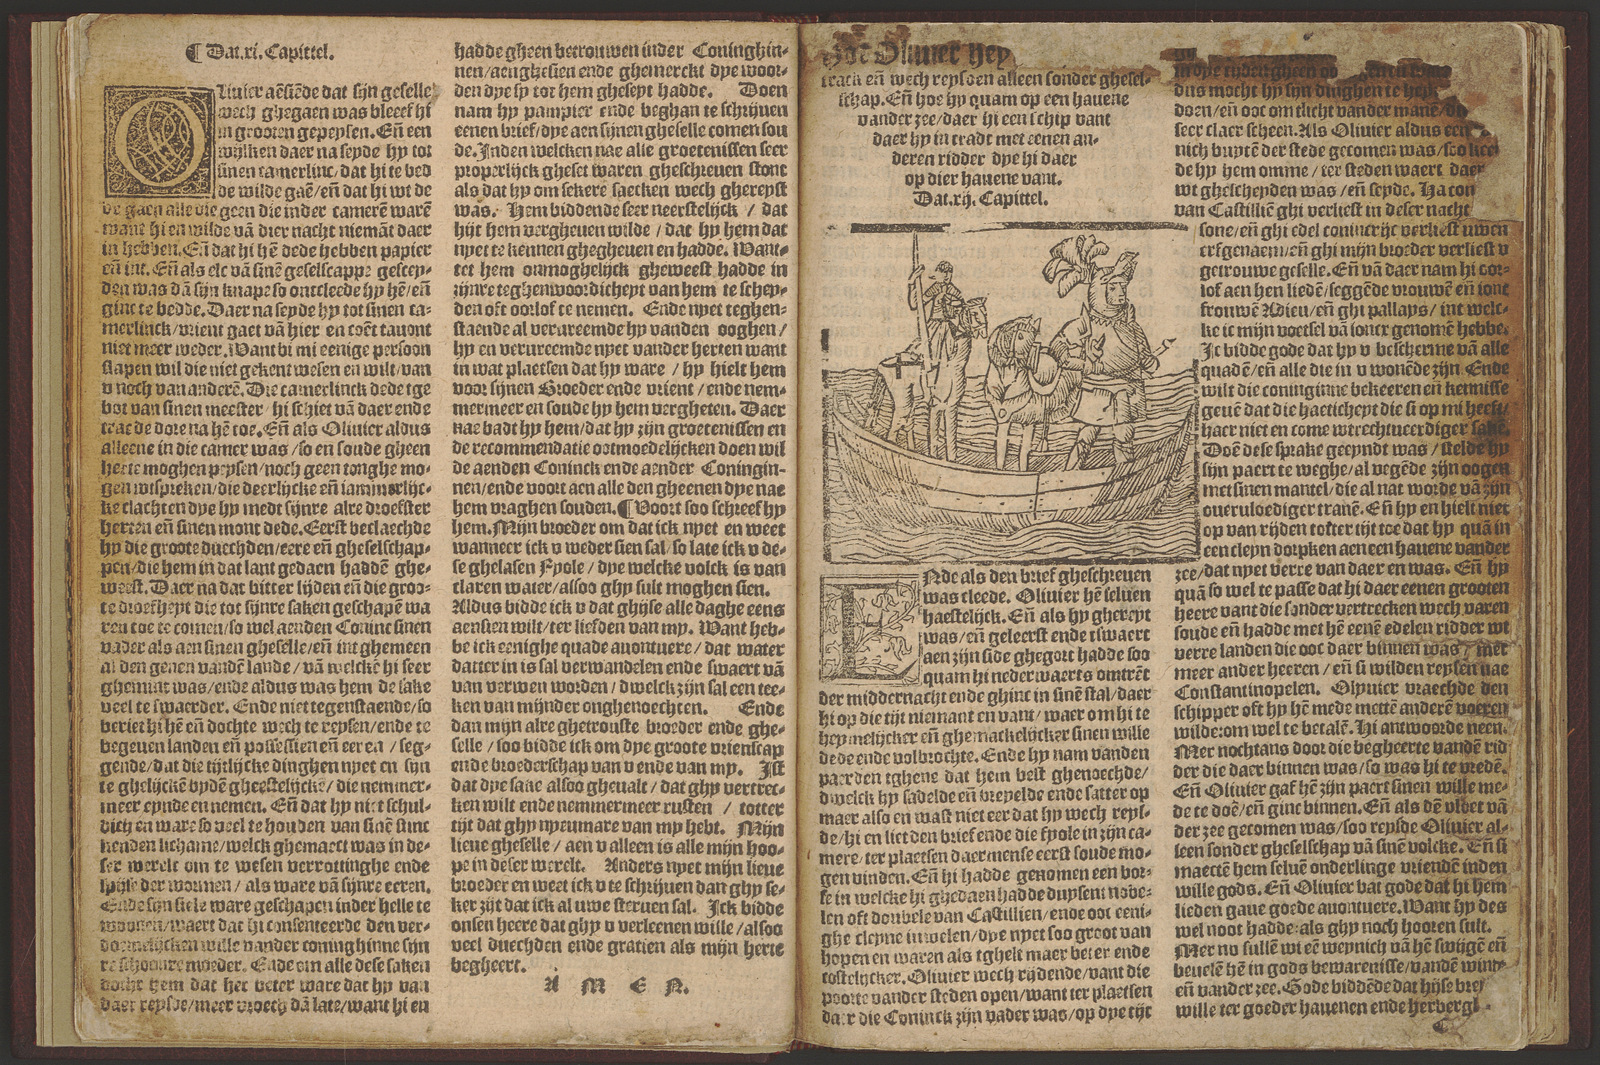 ¶ Dat.xi. Capittel.
OLiuier aēsiēde dat sijn geselle
wech ghegaen was bleeef hi
in grooten gepeysen. Eñ een
wijlken daer na seyde hy tot
sinen camerlinc/dat hi te bed
de wilde gaē/eñ dat hi wt de
de gaen alle die geen die inder camerē warē
want hi en wilde vā dier nacht niemāt daer
in hebben. Eñ dat hi hē dede hebben papier
eñ int. Eñ als elc vā sinē geselscappe gescey-
den was dā sijn knape so ontcleede hy hē/eñ
ginc te bedde. Daer na seyde hy tot sinen ca-
merlinck/vrient gaet vā hier en coēt tauont
niet meer weder. Want bi mi eenige persoon
slapen wil die niet gekent wesen en wilt/van
v noch van anderē. Die camerlinck dede tge
bot van sinen meester/hi schiet vā daer ende
trac de dore na hē toe. Eñ als Oliuier aldus
alleene in die camer was/so en soude gheen
herte moghen peysen/noch geen tonghe mo-
gen wtspreken/die deerlijcke eñ iammerlijc-
ke clachten dye hy medt sijnre alre droefster
herten eñ sinen mont dede. Eerst beclaechde
hy die groote duechden/eere eñ gheselschap-
pen/die hem in dat lant gedaen haddē ghe-
weest. Daer na dat bitter lijden eñ die groo-
te droefheyt die tot sijnre saken geschapē wa
ren toe te comen/so wel aenden Coninc sinen
vader als aen sinen gheselle/eñ int ghemeen
al den genen vandē lande/vā welckē hi seer
ghemint was/ende aldus was hem de sake
veel te swaerder. Ende niet tegenstaende/so
veriet hi hē eñ dochte wech te reysen/ende te
begeuen landen eñ possessien eñ eeren/seg-
gende/dat die tijtlijcke dinghen nyet en sijn
te ghelijckē bydē gheestelijckē/die nemmer-
meer eynde en nemen. Eñ dat hy niet schul-
dich en ware so veel te houden van sinē stinc
kenden lichame/welck ghemaect was in de-
ser werelt om te wesen verrottinghe ende
spijse der wormen/als ware vā sijnre eeren.
Ende sijn siele ware geschapen inder helle te
woonen/waert dat hi consenteerde den ver-
doemelijcken wille vander coninghinne sijn
re schoonre moeder. Ende om alle dese saken
docht hem dat het beter ware dat hy van
daer reysde/meer vroech dā late/want hi en
hadde gheen betrouwen inder Coninghin-
nen/aenghesien ende ghemerckt dye woor-
den dye sy tot hem gheseyt hadde. Doen
nam hy pampier ende beghan te schrijuen
eenen brief/dye aen sijnen gheselle comen sou
de. Inden welcken nae alle groetenissen seer
properlijck gheset waren gheschreuen stont
als dat hy om sekere saecken wech ghereyst
was. Hem biddende seer neerstelijck / dat
hijt hem vergheuen wilde / dat hy hem dat
nyet te kennen ghegheuen en hadde. Want-
tet hem onmoghelijck gheweest hadde in
zijnre teghenwoordicheyt van hem te schey-
den oft oorlof te nemen. Ende nyet teghen-
staende al verureemde hy vanden ooghen /
hy en verureemde nyet vander herten want
in wat plaetsen dat hy ware / hy hielt hem
voor sijnen Broeder ende vrient / ende nem-
mermeer en soude hy hem vergheten. Daer
nae badt hy hem/dat hy zijn groetenissen en
de recommendatie ootmoedelijcken doen wil
de aenden Coninck ende aender Coningin-
nen/ende voort aen alle den gheenen dye nae
hem vraghen souden. ¶ Voort soo schreef hy
hem. Mijn broeder om dat ick nyet en weet
wanneer ick v weder sien sal/so late ick v de-
se ghelasen Fyole / dye welcke volck is van
claren water/alsoo ghy sult moghen sien.
Aldus bidde ick v dat ghijse alle daghe eens
aensien wilt/ter liefden van my. Want heb-
be ick eenighe quade auontuere/ dat water
datter in is sal verwandelen ende swaert vā
van verwen worden / dwelck zijn sal een tee-
ken van mijnder onghenoechten. Ende
dan mijn alre ghetrouste broeder ende ghe-
selle / soo bidde ick om dye groote vrienscap
ende broederschap van v ende van my. Ist
dat dye sake alsoo gheualt / dat ghy vertrec-
ken wilt ende nemmermeer rusten / totter
tijt dat ghy nyeumare van my hebt. Mijn
lieue gheselle / aen v alleen is alle mijn hoo-
pe in deser werelt. Anders nyet mijn lieue
broeder en weet ick v te schrijuen dan ghy se-
ker zijt dat ick al uwe steruen sal. Ick bidde
onsen heere dat ghy v verleenen wille / alsoo
veel duechden ende gratien als mijn herte
begheert.
A M E N.
Hoe Oliuier hey
track eñ wech reysden alleen sonder ghesel-
schap. Eñ hoe hy quam op een hauene
vander zee/daer hi een schip vant
daer hy in tradt met eenen an-
deren ridder dye hi daer
op dier hauene vant.
Dat.xij. Capittel.
ENde als den brief gheschreuen
was cleede. Oliuier hē seluen
haestelijck. Eñ als hy ghereyt
was/eñ geleerst ende tswaert
aen zijn side ghegort hadde soo
quam hi nederwaerts omtrēt
der middernacht ende ghinc in sinē stal/daer
hi op die tijt niemant en vant/waer om hi te
heymelijcker eñ ghemackelijcker sinen wille
dede ende volbrochte. Ende hy nam vanden
paerden tghene dat hem best ghenoechde/
dwelck hy sadelde eñ breydelde ende satter op
maer also en wast niet eer dat hy wech reys-
de/hi en liet den brief ende die fyole in zijn ca-
mere/ter plaetsen daermense eerst soude mo-
gen vinden. Eñ hi hadde genomen een bor-
se in welcke hi ghedaen hadde duysent nobe-
len oft doubele van Castillien/ende ooc eeni-
ghe cleyne iuwelen/dye nyet soo groot van
hopen en waren als tghelt maer beter ende
costelijcker. Oliuier wech rijdende/vant die
poorte vander steden open/want ter plaetsen
daer die Coninck zijn vader was/op dye tijt
in dye tijden gheen
dus mocht hy sijn dinghen te
doen/eñ oot om tlicht vander manē/
seer claer scheen. Als Oliuier aldus
nich buytē der stede gecomen was/soo
de hy hem omme/ter steden waert daer
wt ghescheyden was/eñ seyde. Ha con
van Castilliē ghi verliest in deser nacht
sone/eñ ghi edel conincrijc verliest uwen
erfgenaem/eñ ghi mijn broeder verliest v
getrouwe geselle. Eñ vā daer nam hi oor-
lof aen hen liedē/seggēde vrouwē eñ ionc
frouwē Adieu/eñ ghi pallays/int welc-
ke ic mijn voetsel vā ioncx genomē hebbe.
Ic bidde gode dat hy v bescherme vā alle
quadē/eñ alle die in v wonēde zijn. Ende
wilt die coninginne bekeeren eñ kennisse
geuē dat die haeticheyt die si op mi heeft/
haer niet en come wt rechtueerdiger sakē.
Doē dese sprake geeyndt was/stelde hy
sijn paert te weghe/al vegēde zijn oogen
met sinen mantel/die al nat worde vā zijn
oueruloediger tranē. Eñ hy en hielt niet
op van rijden totter tijt toe dat hy quā in
een cleyn dorpken aen een hauene vander
zee/dat nyet verre van daer en was. Eñ hy
quā so wel te passe dat hi daer eenen grooten
heere vant die sonder vertrecken wech varen
soude eñ hadde met hē eenē edelen ridder wt
verre landen die ooc daer binnen was/met
meer ander heeren/eñ si wilden reysen nae
Constantinopelen. Olyuier vraechde den
schipper oft hy hē mede mettē anderē voeren
wilde:om wel te betalē. Hi antwoorde neen.
Mer nochtans door die begheerte vandē rid
der die daer binnen was/so was hi te vredē.
Eñ Oliuier gaf hē zijn paert sinen wille me-
de te doē/eñ ginc binnen. Eñ als dē vloet vā
der zee gecomen was/soo reysde Oliuier al-
leen sonder gheselschap vā sinē volcke. Eñ si
maectē hem seluē onderlinge vriendē inden
wille gods. Eñ Oliuier bat gode dat hi hem
lieden gaue goede auontuere. Want hy des
wel noot hadde:als ghy noch hooren sult.
Mer nu sullē wi eē weynich vā hē swijgē eñ
beuelē hē in gods bewarenisse/vandē wint
eñ vander zee. Gode biddēde dat hijse
wille ter goeder hauenen ende